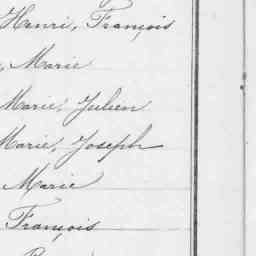 Henri, François
, Marie
Marie, Julien
Marie, Joseph
Marie
François